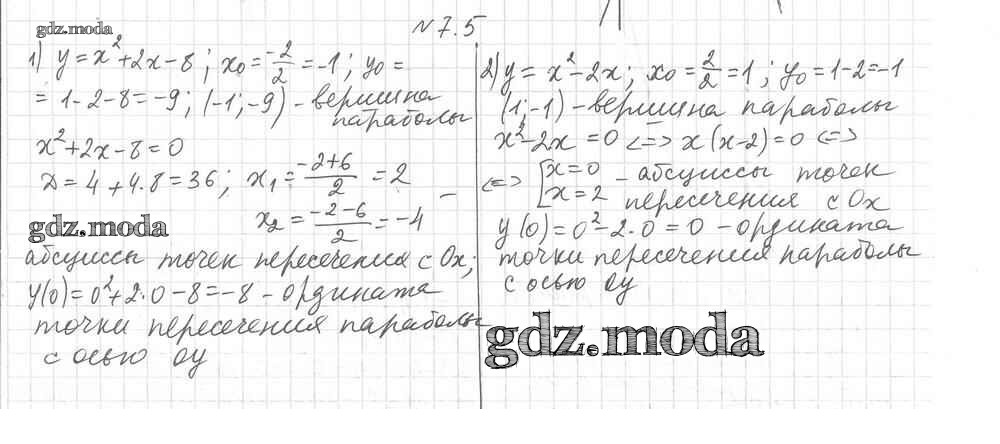 gdz.moda
N 7.5
1) y = x² + 2x - 8; x₀ = -2/2 = -1; y₀ =
= 1 - 2 - 8 = -9; (-1; -9) - вершина
параболы
x² + 2x - 8 = 0
D = 4 + 4·8 = 36; x₁ = (-2+6)/2 = 2
x₂ = (-2-6)/2 = -4 -
gdz.moda
абсциссы точек пересечения с Ox;
y(0) = 0² + 2·0 - 8 = -8 - ордината
точки пересечения параболы
с осью Oy
2) y = x² - 2x; x₀ = 2/2 = 1; y₀ = 1 - 2 = -1
(1; -1) - вершина параболы
x² - 2x = 0 <=> x(x-2) = 0 <=>
<=> [x = 0 - абсциссы точек
x = 2 пересечения с Ox
y(0) = 0² - 2·0 = 0 - ордината
точки пересечения параболы
с осью Oy
gdz.moda